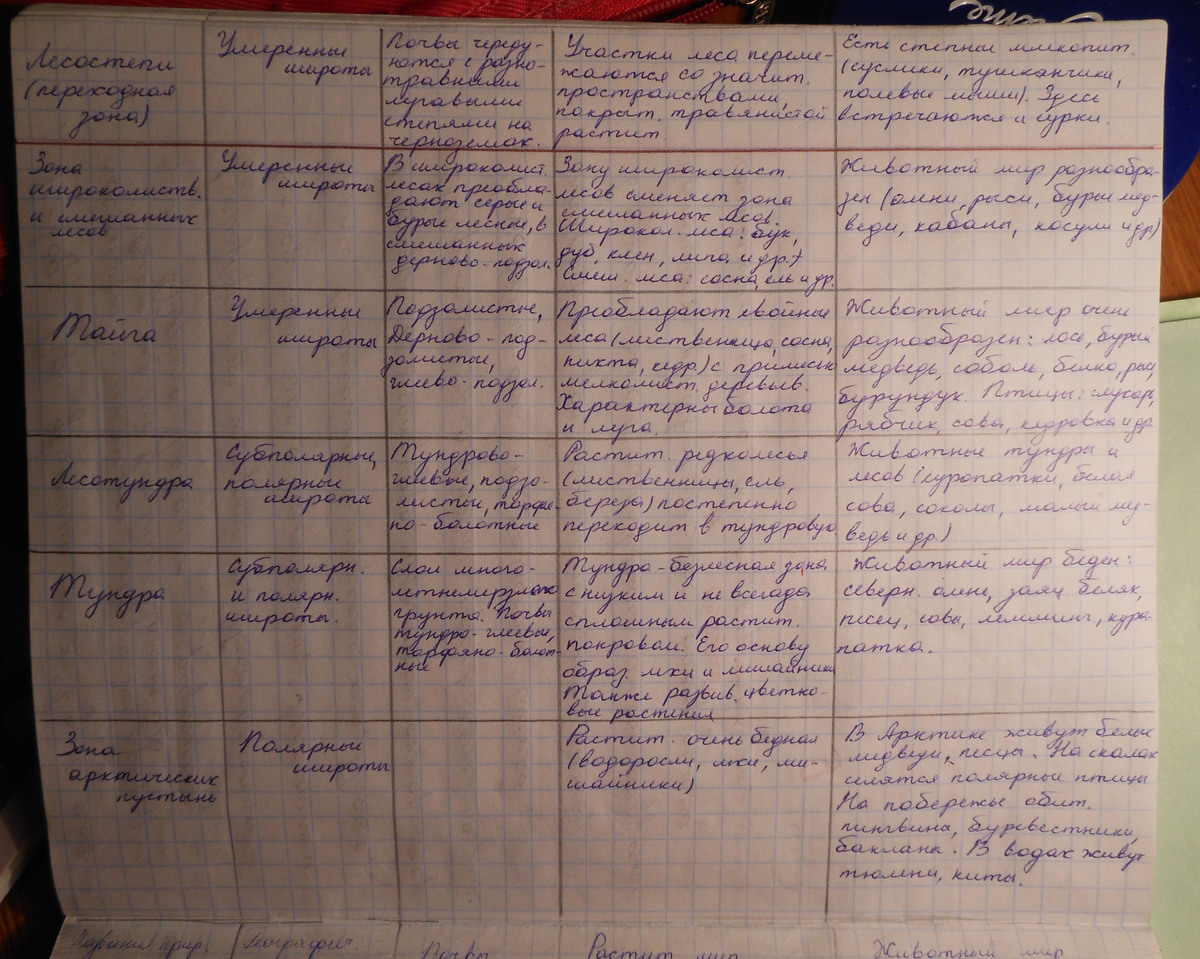 Лесостепи
(переходная
зона)
Умеренные
широты
Почвы череду-
ются с разно-
травными
луговыми
степями на
черноземах.
Участки леса переме-
жаются со значит.
пространствами,
покрыт. травянистой
растит.
Есть степные млекопит.
(суслики, тушканчики,
полевые мыши). Здесь
встречаются и сурки.
Зона
широколиств.
и смешанных
лесов
Умеренные
широты
В широколист.
лесах преобла-
дают серые и
бурые лесные, в
смешанных
дерново-подзол.
Зону широколист.
лесов сменяет зона
смешанных лесов.
Широкол. леса: бук,
дуб, клен, липа и др.)
Смеш. леса: сосна, ель и др.
Животный мир разнообра-
зен (олени, рыси, бурые мед-
веди, кабаны, косули и др)
Тайга
Умеренные
широты
Подзолистые,
Дерново-под-
золистые,
глеево-подзол.
Преобладают хвойные
леса (лиственница, сосна,
пихта, кедр) с примесью
мелколист. деревьев.
Характерны болота
и луга.
Животный мир очень
разнообразен: лось, бурый
медведь, соболь, белка, рысь,
бурундук. Птицы: глухарь,
рябчик, сова, кедровка и др
Лесотундра
Субполярные,
полярные
широты
Тундрово-
глеевые, подзо-
листые, торфя-
но-болотные
Растит. редколесья
(лиственницы, ель,
береза) постепенно
переходит в тундровую
Животные тундры и
лесов (куропатки, белая
сова, соколы, малый мед-
ведь и др.)
Тундра
Субполярн.
и полярн.
широты.
Слои много-
летнемерзлого
грунта. Почвы
тундро-глеевые,
торфяно-болот-
ные
Тундра - безлесная зона
с низким и не всегада
сплошным растит.
покровом. Его основу
образ. мхи и лишайники
Также развив. цветко-
вые растения
Животный мир беден:
северн. олень, заяц беляк,
песец, совы, лемминг, куро-
патка.
Зона
арктических
пустынь
Полярные
широты
Растит. очень бедная
(водоросли, мхи, ли-
шайники)
В Арктике живут белые
медведи, песцы. На скалах
селятся полярные птицы
На побережье обит.
пингвины, буревестники,
бакланы. В водах живут
тюлени, киты.
Название прир.
Географич.
Почвы
Растит. мир
Животный мир